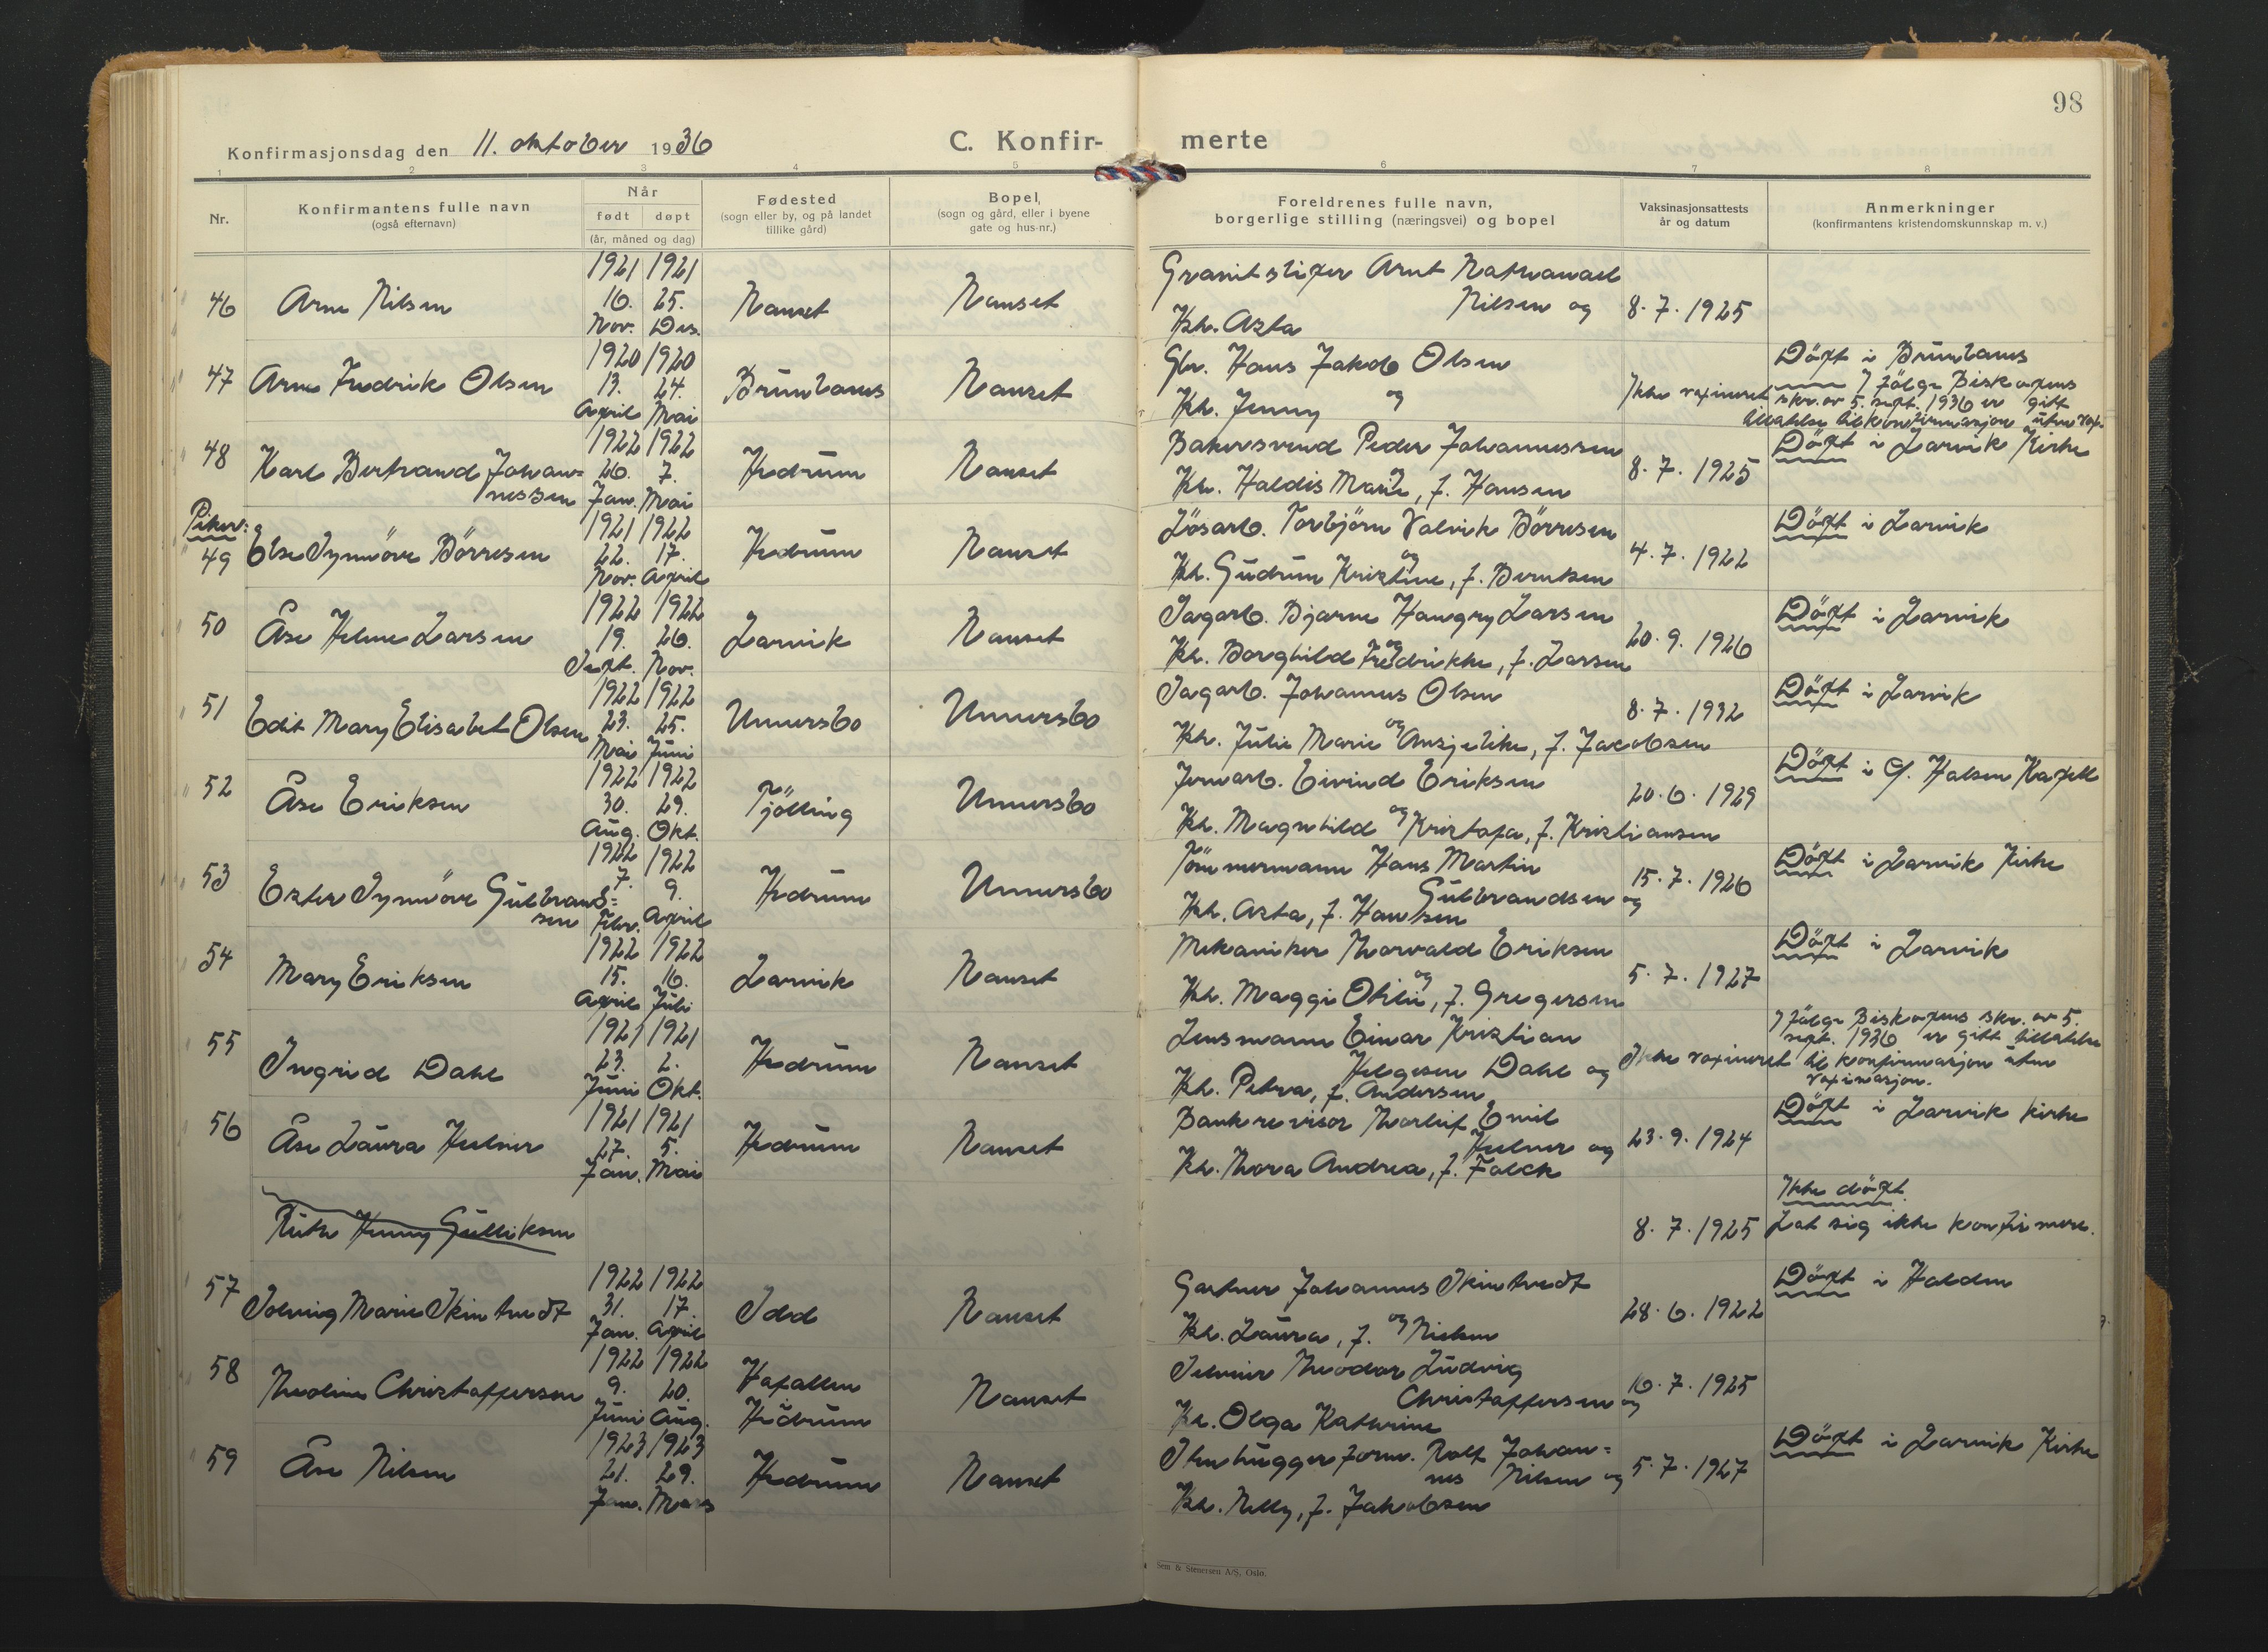 98
Konfirmasjonsdag den 11. oktober 1936
C. Konfir-merte
1 2 3 4 5 6 7 8
Nr.
Konfirmantens fulle navn
(også efternavn)
Når
født døpt
(år, måned og dag)
Fødested
(sogn eller by, og på landet
tillike gård)
Bopel,
(sogn og gård, eller i byene
gate og hus-nr.)
Foreldrenes fulle navn,
borgerlige stilling (næringsvei) og bopel
Vaksinasjonsattests
år og datum
Anmerkninger
(konfirmantens kristendomskunnskap m. v.)
46 Arne Nilsen 1921 16. Nov. 1921 25. Des. Nanset Nanset
Granitsliper Arnt Nathanael
Nilsen og
Kh. Asta
8.7.1925
47 Arne Fredrik Olsen 1920 13. April 1920 24. Mai Brunlanes Nanset
Gbr. Hans Jakob Olsen
og
Kh. Jenny
Ikke vaxineret
Döpt i Brunlanes
I fölge Biskopens
skr. av 5. sept. 1936 er gitt
tillatelse til konfirmasjon uten vax.
48 Karl Bertrand Johan=
nessen 1922 26. Jan. 1922 7. Mai Hedrum Nanset
Bakersvend Peder Johannessen
og
Kh. Haldis Marie, f. Hansen
8.7.1925
Döpt i Larvik Kirke
Piker:
49 Else Synnöve Börresen 1921 22. Nov. 1922 17. April Hedrum Nanset
Lösarb. Torbjörn Valvik Börresen
og
Kh. Gudrun Kristine, f. Berntsen
4.7.1922
Döpt i Larvik
50 Åse Helene Larsen 1922 19. Sept. 1922 26. Nov. Larvik Nanset
Sagarb. Bjarne Hangry Larsen
og
Kh. Borghild Fredrikke, f. Larsen
20.9.1926
Döpt i Larvik
51 Edit Mary Elisabet Olsen 1922 23. Mai 1922 25. Juni Unnersbo Unnersbo
Sagarb. Johannes Olsen
og
Kh. Julie Marie Ansjelike, f. Jacobsen
8.7.1932
Döpt i Larvik
52 Åse Eriksen 1922 30. Aug. 1922 29. Okt. Tjölling Unnersbo
Jernarb. Eivind Eriksen
og
Kh. Magnhild Kristofa, f. Kristiansen
20.6.1929
Döpt i Ö. Halsen Kapell
53 Ester Synnöve Gulbrand=
sen 1922 7. Febr. 1922 9. April Hedrum Unnersbo
Tömmermann Hans Martin
Gulbrandsen og
Kh. Asta, f. Hansen
15.7.1926
Döpt i Larvik Kirke
54 Mary Eriksen 1922 15. April 1922 16. Juli Larvik Nanset
Mekaniker Thorvald Eriksen
og
Kh. Maggi Otilie, f. Gregersen
5.7.1927
Döpt i Larvik
55 Ingrid Dahl 1921 23. Juni 1921 2. Okt. Hedrum Nanset
Lensmann Einar Kristian
Helgesen Dahl og
Kh. Petra, f. Andersen
Ikke vaxineret
I fölge Biskopens skr. av 5.
sept. 1936 er gitt tillatelse
til konfirmasjon uten
vaxinasjon.
56 Åse Laura Helner 1921 27. Jan. 1921 5. Mai Hedrum Nanset
Bankrevisor Thorleif Emil
Helner og
Kh. Thora Andrea, f. Falck
23.9.1924
Döpt i Larvik kirke
Ruth Henny Gulliksen
8.7.1925
Ikke döpt.
Lat sig ikke konfirmere.
57 Solveig Marie Skintvedt 1922 31. Jan. 1922 17. April Idd Nanset
Gartner Johannes Skintvedt
og
Kh. Laura, f. Nielsen
28.6.1922
Döpt i Halden
58 Theoline Christoffersen 1922 9. Juni 1922 20. Aug. Hafallen
Hedrum Nanset
Theodor Ludvig
Christoffersen og
Kh. Olga Kathrine
16.7.1925
59 Åse Nilsen 1923 21. Jan. 1923 29. Mars Hedrum Nanset
Stenhuggerform. Rolf Johan=
nes Nilsen og
Kh. Nelly, f. Jakobsen
5.7.1927
Döpt i Larvik Kirke
Sem & Stenersen A/S, Oslo.